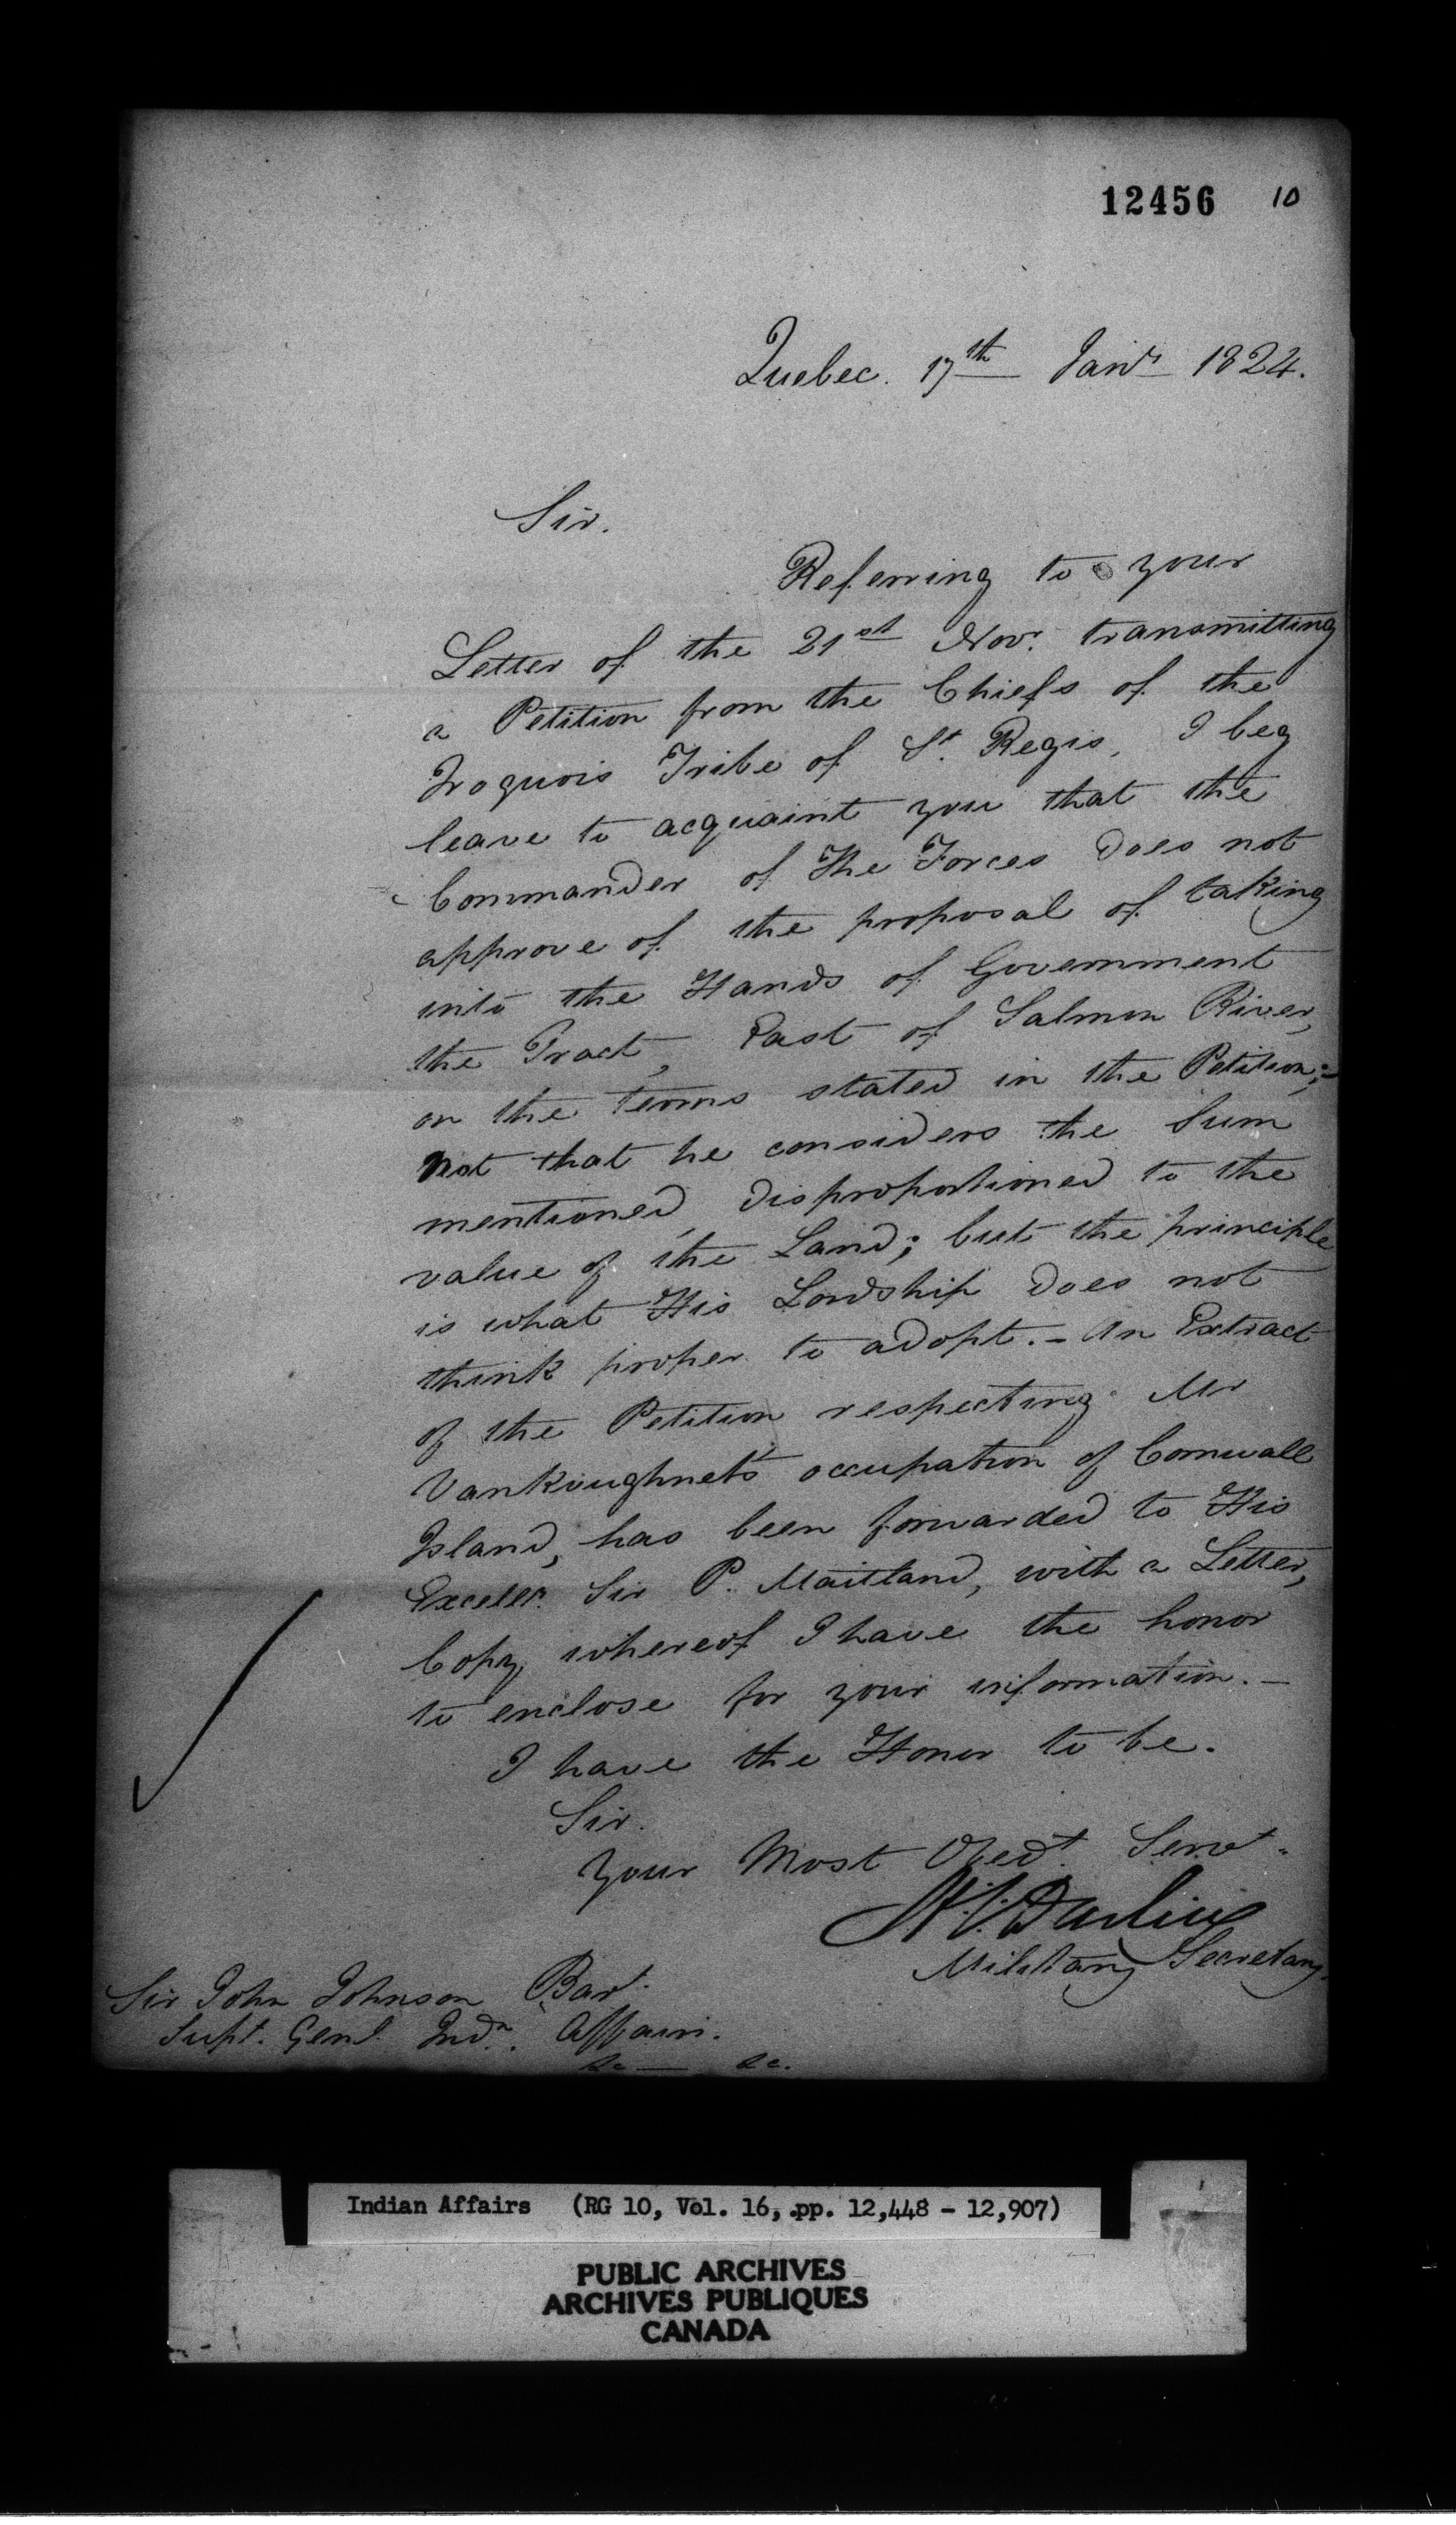 12456 10
Quebec. 17th Jany 1824.
Sir.
Referring to your
Letter of the 21st Novr. transmitting
a Petition from the Chiefs of the
Iroquois Tribe of St. Regis, I beg
leave to acquaint you that the
Commander of The Forces does not
approve of the proposal of taking
into the Hands of Government
the Tract, East of Salmon River,
on the terms stated in the Petition;-
Not that he considers the Sum
mentioned disproportioned to the
value of the Land; but the principle
is what His Lordship does not
think proper to adopt.- An Extract
of the Petition respecting Mr
VanKoughnet's occupation of Cornwall
Island, has been forwarded to His
Excelly. Sir P. Maitland, with a Letter,
Copy whereof I have the honor
to enclose for your information.-
I have the Honor to be.
Sir.
Your Most Obedt. Servt.
H.C. Darling
Military Secretary.
Sir John Johnson Bart.
Supt. Genl. Indn. Affairs.
&c — &c.
Indian Affairs (RG 10, Vol. 16, pp. 12,448 - 12,907)
PUBLIC ARCHIVES
ARCHIVES PUBLIQUES
CANADA